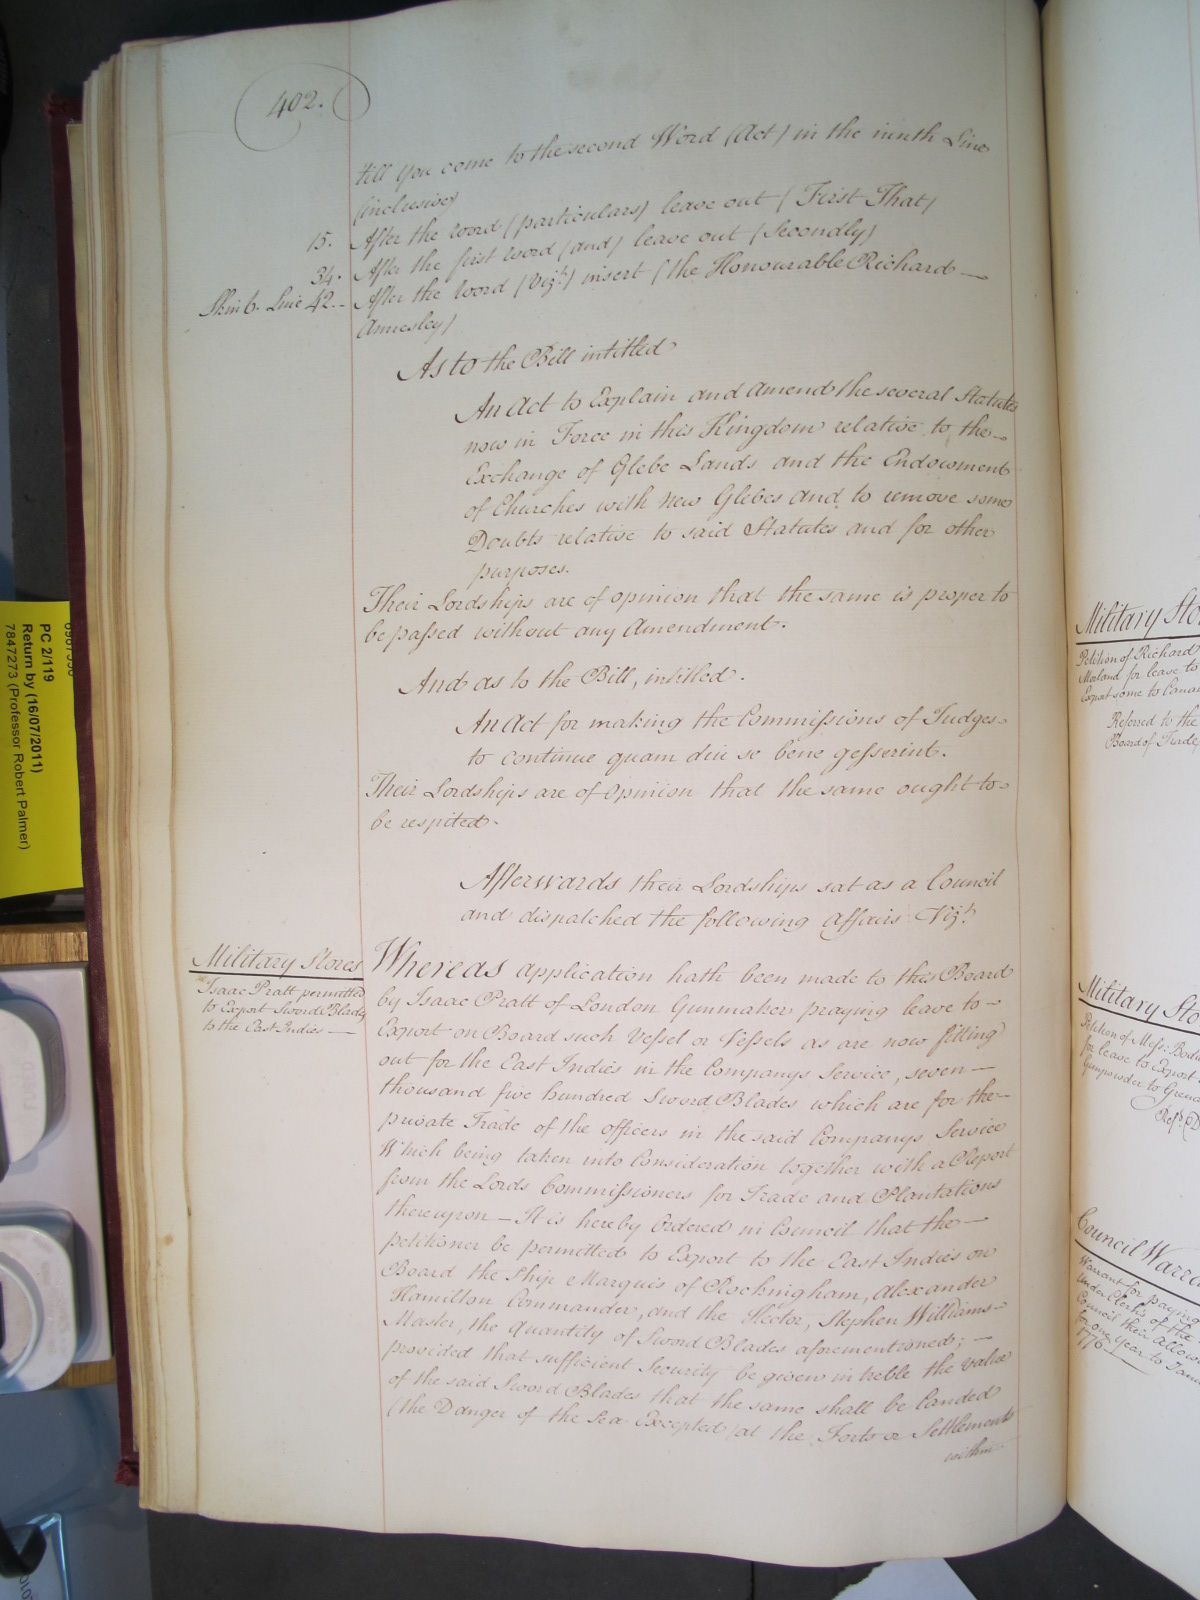 402.
till you come to the second Word (Act) in the ninth Line
(inclusive)
15. After the word (particulars) leave out (First That)
34. After the first word (and) leave out (Secondly)
Skin 6. Line 42.- After the Word (Vizt.) insert (the Honourable Richard —
Annesley)
As to the Bill intitled
An Act to Explain and Amend the several Statutes
now in Force in this Kingdom relative to the
Exchange of Glebe Lands and the Endowment
of Churches with New Glebes and to remove some
Doubts relative to said Statutes and for other
purposes.
Their Lordships are of opinion that the same is proper to
be passed without any Amendment.
And as to the Bill, intitled.
An Act for making the Commissions of Judges
to continue quam diu se bene gesserint.
Their Lordships are of Opinion that the same ought to
be respited.
Afterwards their Lordships sat as a Council
and dispatched the following affairs Vizt.
Military Stores
Isaac Pratt permitted
to Export Sword Blades
to the East Indies —
Whereas application hath been made to this Board
by Isaac Pratt of London Gunmaker praying leave to —
Export on Board such Vessel or Vessels as are now fitting
out for the East Indies in the Companys Service, seven —
thousand five hundred Sword Blades which are for the —
private Trade of the officers in the said Companys Service
Which being taken into Consideration together with a Report
from the Lords Commissioners for Trade and Plantations
thereupon — It is hereby Ordered in Council that the —
petitioner be permitted to Export to the East Indies on
Board the Ship Marquis of Rockingham, Alexander
Hamilton Commander, and the Hector, Stephen Williams
Master, the quantity of Sword Blades aforementioned; —
provided that sufficient Security be given in treble the value
of the said Sword Blades that the same shall be landed
(the Danger of the Sea Excepted) at the Forts or Settlements
within
Military Sto
Petition of Richard
Morland for leave to
Export some to Cana
Referred to the
Board of Trade
Military Sto
Petition of Messrs: Bod
for leave to Export
Gunpowder to Grena
Refd.
Council Warra
Warrant for paying
Under Clerks of the
Council their allow
for one year to Janu
1776
PC 2/119
Return by (16/07/2011)
7847273 (Professor Robert Palmer)